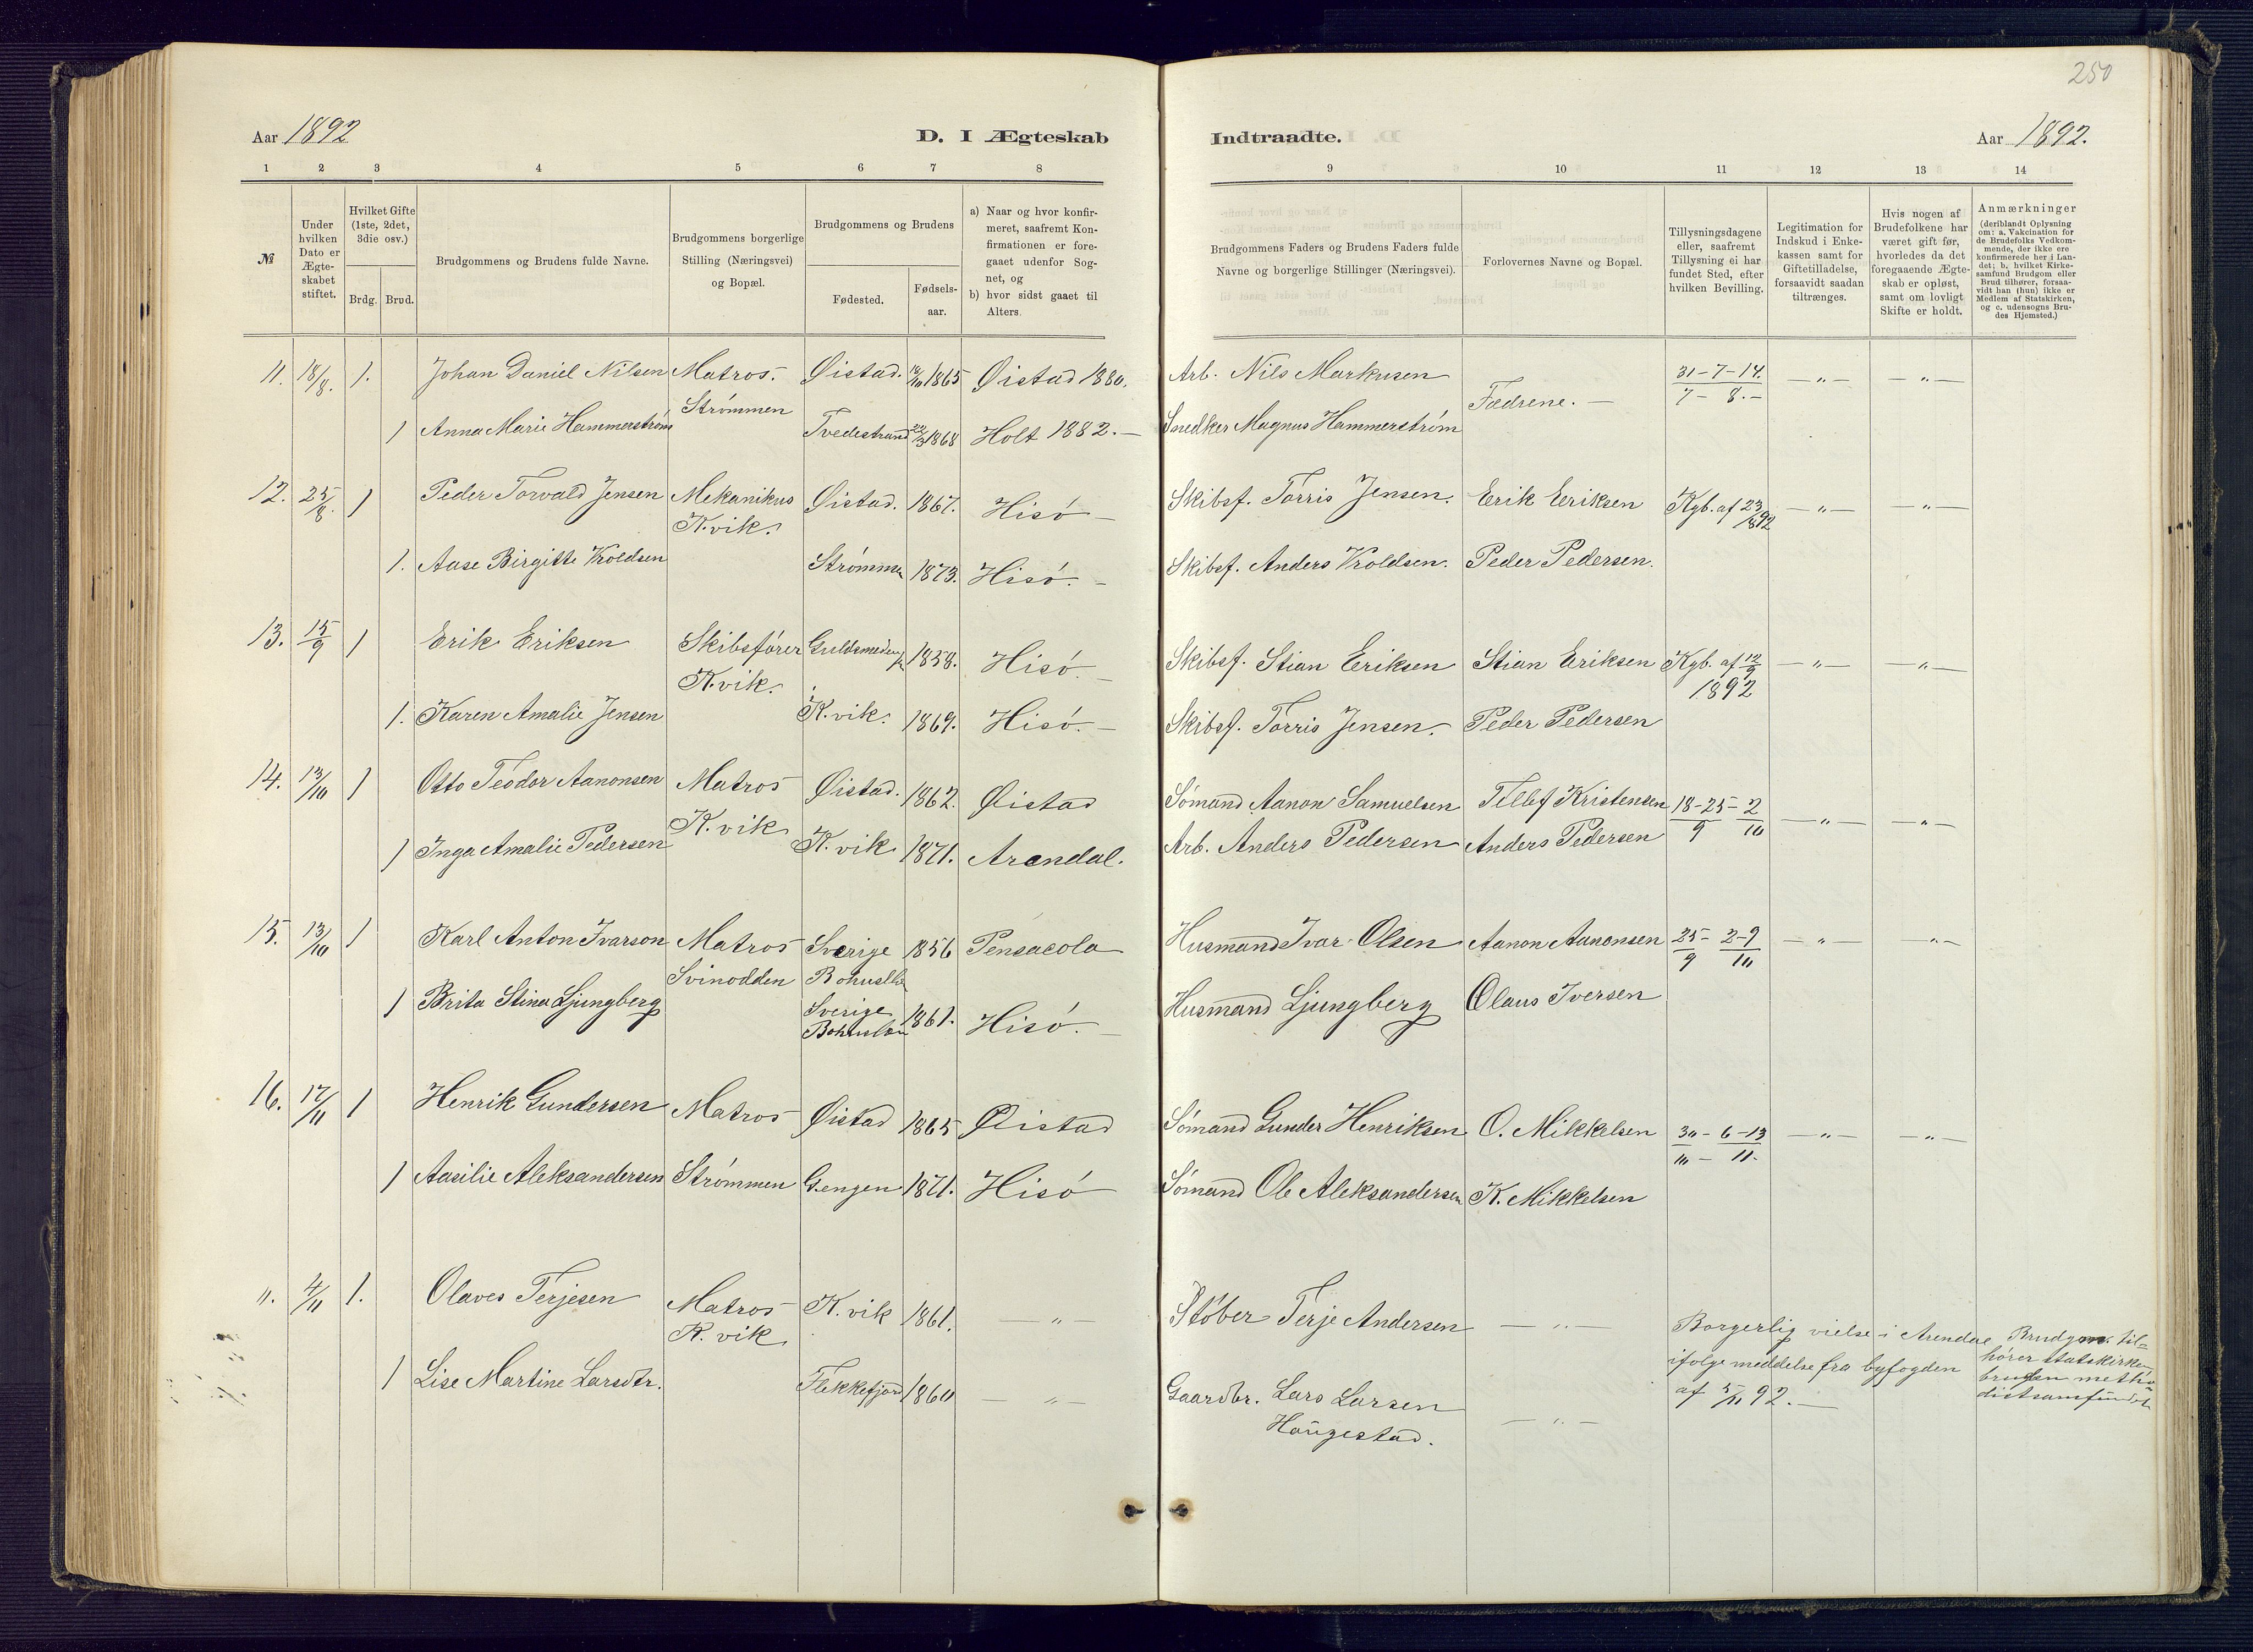 250
Aar 1892
D. I Ægteskab
Indtraadte.
Aar 1892.
1 2 3 4 5 6 7 8
9 10 11 12 13 14
№
Under hvilken Dato er Ægte-skabet stiftet.
Hvilket Gifte (1ste, 2det, 3die osv.)
Brdg. Brud.
Brudgommens og Brudens fulde Navne.
Brudgommens borgerlige
Stilling (Næringsvei)
og Bopæl.
Brudgommens og Brudens
Fødested.
Fødsels-
aar.
a) Naar og hvor konfir-
meret, saafremt Kon-
firmationen er fore-
gaaet udenfor Sog-
net, og
b) hvor sidst gaaet til
Alters.
Brudgommens Faders og Brudens Faders fulde
Navne og borgerlige Stillinger (Næringsvei).
Forlovernes Navne og Bopæl.
Tillysningsdagene
eller, saafremt
Tillysning ei har
fundet Sted, efter
hvilken Bevilling.
Legitimation for
Indskud i Enke-
kassen samt for
Giftetilladelse,
forsaavidt saadan
tiltrænges.
Hvis nogen af
Brudefolkene har
været gift før,
hvorledes da det
foregaaende Ægte-
skab er opløst,
samt om lovligt
Skifte er holdt.
Anmærkninger
(deriblandt Oplysning
om: a. Vakcination for
de Brudefolks Vedkom-
mende, der ikke ere
konfirmerede her i Lan-
det; b. hvilket Kirke-
samfund Brudgom eller
Brud tilhører, forsaa-
vidt han (hun) ikke er
Medlem af Statskirken,
og c. udensogns Bru-
des Hjemsted.)
11. 18/8. 1. Johan Daniel Nilsen Matros. Øistad. 1865 Øistad 1880. Arb. Nils Markusen 31-7-14.
Strømmen Fædrene. — 7- 8.- — „ — — „ —
1 Anna Marie Hammerstrøm Tvedestrand 1868 Holt 1882. — Snedker Magnus Hammerstrøm
12. 25/8. 1 Peder Torvald Jensen Mekanikus Øistad. 1867. Hisö — Skibsf. Torris Jensen. Erik Eriksen Kgb. af 23/8 92 — „ — — „ —
K.vik.
1. Aase Birgitte Kroldsen Strømmen 1873. Hisö. — Skibsf. Anders Kroldsen. Peder Pedersen.
13. 15/9 1 Erik Eriksen Skibsfører 1858. Hisö. — Skibsf. Stian Eriksen Stian Eriksen Kgb. af 12/9 — „ — — „ —
K.vik. 1892
1. Karen Amalie Jensen K.vik. 1869. Hisö. — Skibsf. Torris Jensen. Peder Pedersen
14. 13/10 1 Otto Teodor Aanonsen Matros Øistad. 1862. Øistad Sømand Aanon Samuelsen Tellef Kristensen 18-25- 2
K.vik 9 10 — „ — — „ —
1 Inga Amalie Pedersen K.vik 1871. Arendal. Arb. Anders Pedersen Anders Pedersen
15. 13/10 1 Karl Anton Ivarson Matros Sverige 1856 Pensacola Husmand Ivar Olsen Aanon Aanonsen 25- 2-9 — „ — — „ —
Svinodden 9 10
1 Brita Stina Ljungberg Sverige 1861. Hisö. — Husmand Ljungberg Olaus Iversen
Bohuslän
16. 17/11 1 Henrik Gundersen Matros Øistad 1865 Øistad Sømand Gunder Henriksen O. Mikkelsen 30- 6-13 — „ — — „ —
10 — 11.
1 Aasilie Aleksandersen Strømmen Gjengen 1871. Hisö Sømand Ole Aleksandersen K. Mikkelsen
„. 4/11 1. Olaves Terjesen Matros K.vik 1861. — „ — Støber Terje Andersen — „ —
K.vik
1 Lise Martine Larsdtr. Flekkefjord 1860 — „ — Gaardbr. Lars Larsen — „ —
Haugestad.
Borgerlig vielse i Arendal
ifølge meddelse fra byfogden
af 5/11 92. —
Brudgom. til-
hører statskirken
bruden metho-
distsamfundet